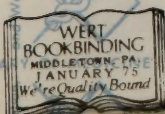 WERT
BOOKBINDING
MIDDLETOWN, PA.
JANUARY 75
We're Quality Bound